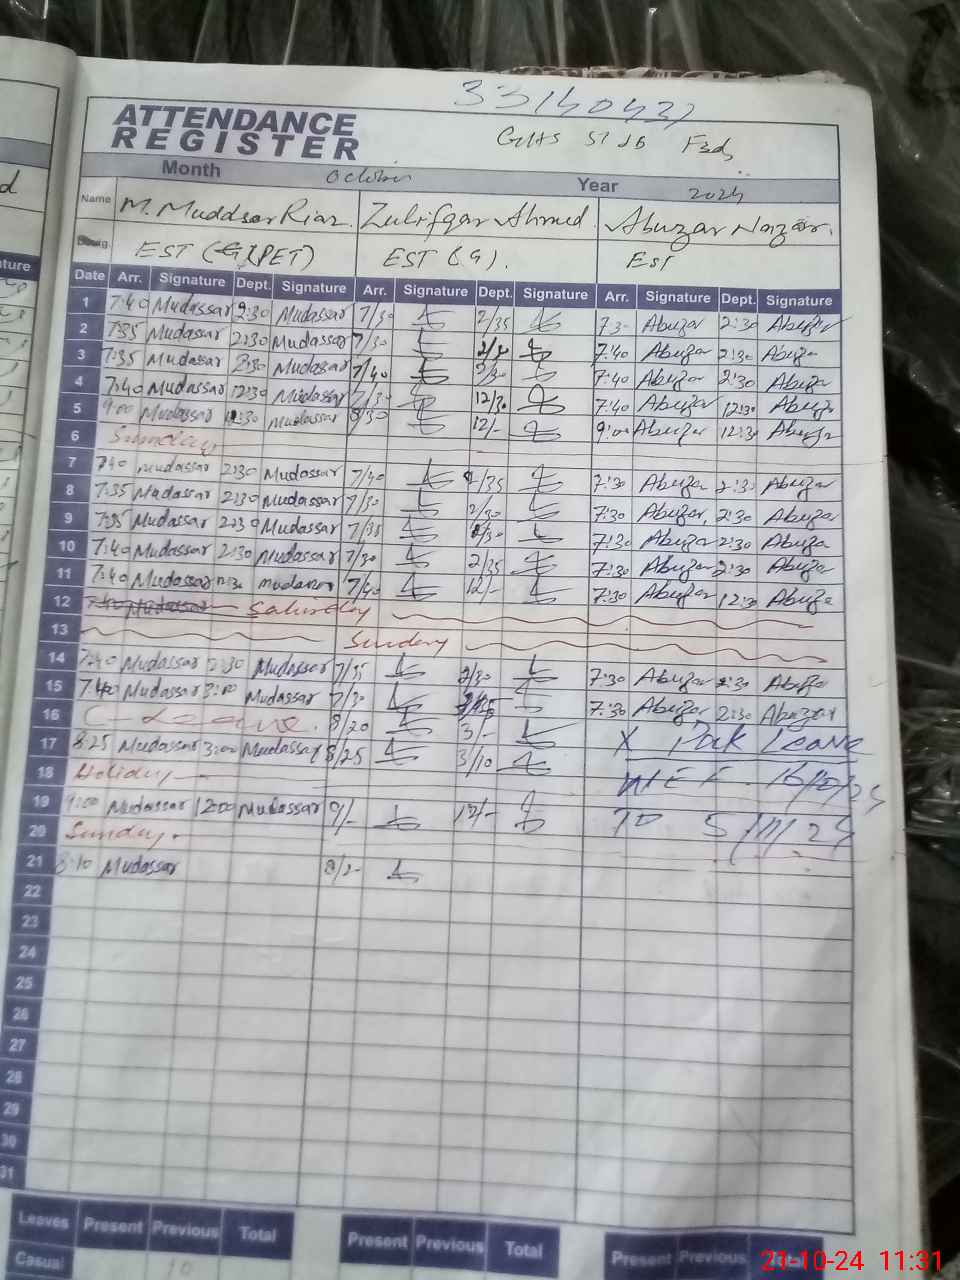 33140437
ATTENDANCE
REGISTER
GHS 51 JB Fsd,
Month October Year 2024
Name M. Muddsar Riaz Zulifqar Ahmed Abuzar Nazar.
Desig. EST (PET) EST (G). EST
Date Arr. Signature Dept. Signature Arr. Signature Dept. Signature Arr. Signature Dept. Signature
1 7:40 Mudassar 2:30 Mudassar 7/30 2/35 7:30 Abuzar 2:30 Abuzar
2 7:35 Mudassar 2:30 Mudassar 7/30 2/30 7:40 Abuzar 2:30 Abuzar
3 7:35 Mudassar 2:30 Mudassar 7/40 2/30 7:40 Abuzar 2:30 Abuzar
4 7:40 Mudassar 12:30 Mudassar 7/30 12/30 7:40 Abuzar 12:30 Abuzar
5 9:00 Mudassar 12:30 Mudassar 8/30 12/- 9:00 Abuzar 12:30 Abuzar
6 Sunday
7 7:40 Mudassar 2:30 Mudassar 7/40 2/35 7:30 Abuzar 2:30 Abuzar
8 7:35 Mudassar 2:30 Mudassar 7/30 2/30 7:30 Abuzar, 2:30 Abuzar
9 7:35 Mudassar 2:30 Mudassar 7/35 2/30 7:30 Abuzar 2:30 Abuzar
10 7:40 Mudassar 2:30 Mudassar 7/30 2/35 7:30 Abuzar 2:30 Abuzar
11 7:40 Mudassar 12:30 Mudassar 7/40 12/- 7:30 Abuzar 12:30 Abuzar
12 Mudassar Saturday
13 Sunday
14 7:40 Mudassar 2:30 Mudassar 7/35 2/30 7:30 Abuzar 2:30 Abuzar
15 7:40 Mudassar 3:00 Mudassar 7/30 7:30 Abuzar 2:30 Abuzar
16 C-Leave. 8/20 3/- X Pak Leave
17 8:25 Mudassar 3:00 Mudassar 8/25 3/10
18 Holiday WEF 16/10/24
19 9:00 Mudassar 12:00 Mudassar 9/- 12/- TO 5/11/24
20 Sunday.
21 8:10 Mudassar 8/2-
22
23
24
25
26
27
28
29
30
31
Leaves Present Previous Total Present Previous Total Present Previous Total
Casual 10
21-10-24 11:31